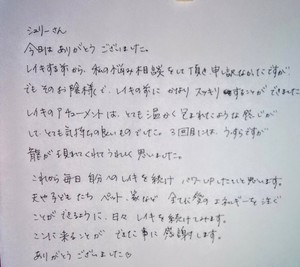 シュリーさん
今日は ありがとう ございました。
レイキする前から、私の悩み相談をして頂き 申し訳なかったですが
でも そのお陰様で、レイキの前に かなり スッキリすることができました
レイキのアチューメントは、とても温かく 包まれたような 感じが
して とても気持ちの良いものでした。3回目には、うすらですが
龍が現れてくれて うれしく 思いました。
これから毎日 自分へのレイキを続け パワーUPしていこうと思います。
夫や子どもたち ペット、家など 全てに愛のエネルギーを注ぐ
ことができるように、日々 レイキを続けてみます。
ここに来ることが できた事に 感謝します。
ありがとう ございました♡